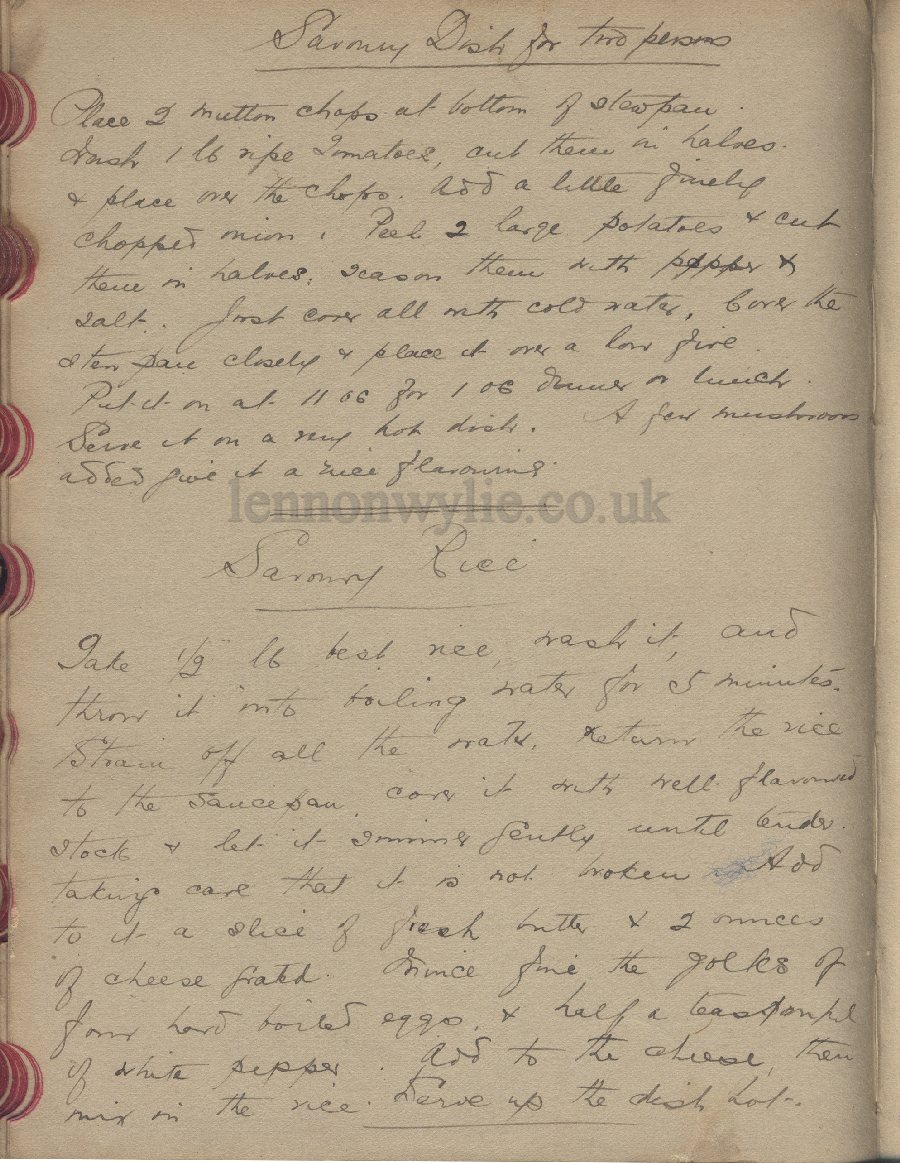 Savoury Dish for two persons
Place 2 mutton chops at bottom of stewpan.
Wash 1 lb ripe Tomatoes, cut them in halves.
& place over the chops. Add a little finely
chopped onion. Peel 2 large potatoes & cut
them in halves. Season them with pepper &
salt. Just cover all with cold water. Cover the
stew pan closely & place it over a low fire.
Put it on at 11 oc for 1 oc dinner or lunch.
Serve it on a very hot dish. A few mushrooms
added give it a nice flavouring.
lennonwylie.co.uk
Savoury Rice
Take 1/2 lb best rice, wash it, and
throw it into boiling water for 5 minutes.
Strain off all the water. Return the rice
to the saucepan cover it with well flavoured
stock & let it simmer gently until tender.
taking care that it is not broken Add
to it a slice of fresh butter & 2 ounces
of cheese grated. Mince fine the yolks of
four hard boiled eggs, & half a teaspoonful
of white pepper. Add to the cheese, then
mix in the rice. Serve up the dish hot.